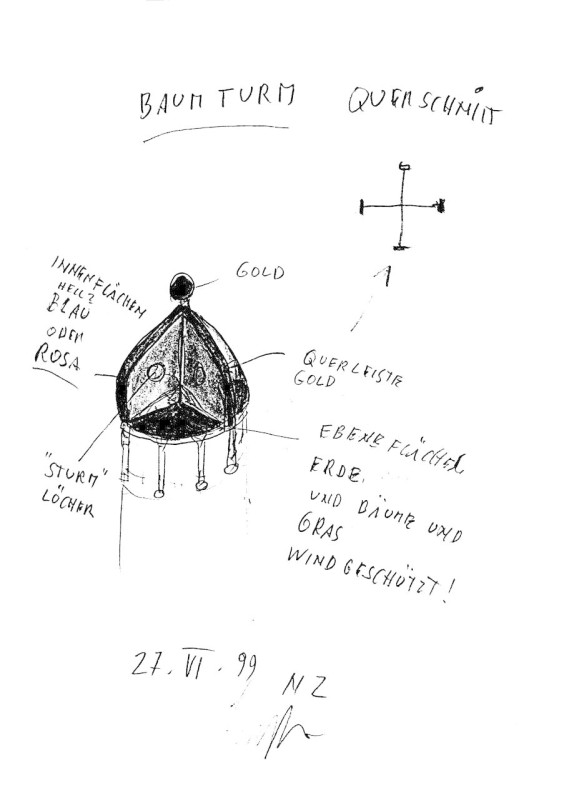 BAUM TURM QUERSCHNITT
GOLD
INNENFLÄCHEN
HELL?
BLAU
ODER
ROSA
QUERLEISTE
GOLD
"STURM"
LÖCHER
EBENE FLÄCHEN
ERDE.
UND BÄUME UND
GRAS
WINDGESCHÜTZT!
27. VI. 99 NZ